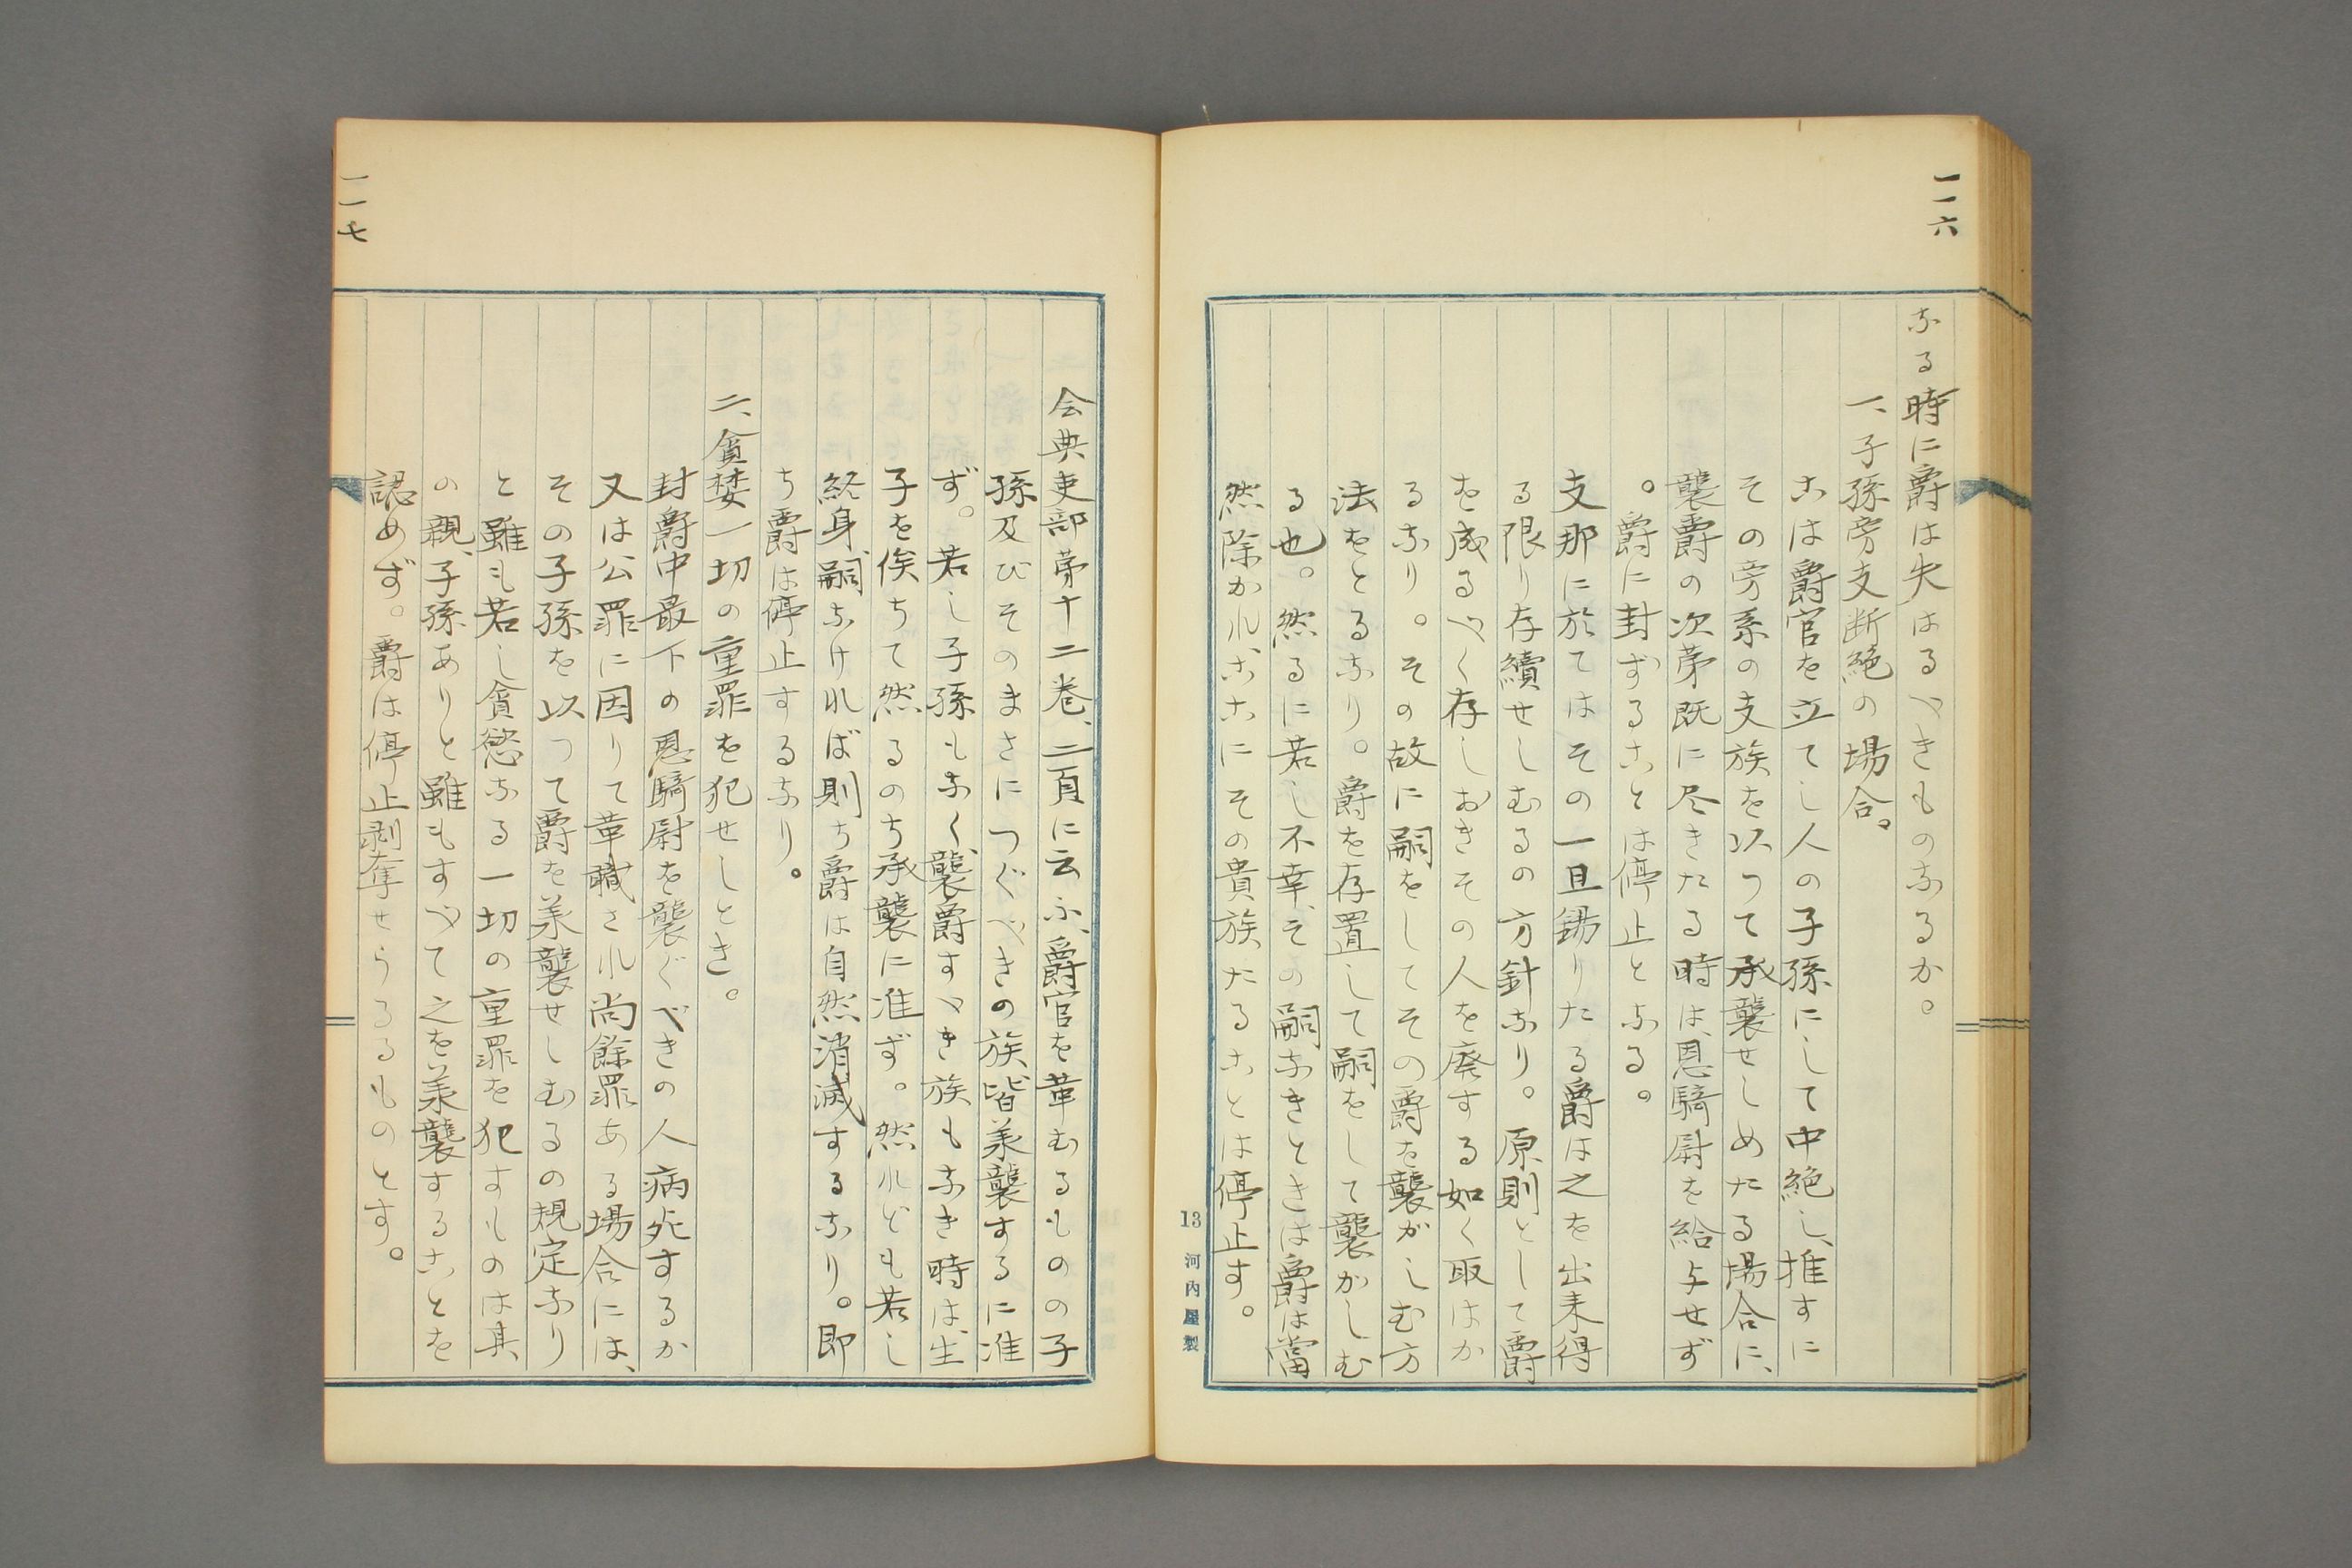 一一六
なる時に爵は失はるべきものなるか。
一、子孫旁支断絶の場合。
こは爵官を立てし人の子孫にして中絶し、推すに
その旁系の支族を以つて承襲せしめたる場合に、
襲爵の次第既に尽きたる時は、恩騎尉を給与せず
。爵に封ずることは停止となる。
支那に於てはその一旦錫りたる爵は之を出来得
る限り存續せしむるの方針なり。原則として爵
を成るべく存しおきその人を廃する如く取はか
るなり。その故に嗣をしてその爵を襲がしむ方
法をとるなり。爵を存置して嗣をして襲かしむ
る也。然るに若し不幸、その嗣なきときは爵は當
然除かれ、こゝにその貴族たることは停止す。
13 河内屋製
会典吏部第十二巻、二頁に云ふ、爵官を革むるものの子
孫及びそのまさにつぐべきの族皆羕襲するに准
ず。若し子孫もなく、襲爵すべき族もなき時は、生
子を俟ちて然るのち承襲に准ず。然れども若し
終身、嗣なければ則ち爵は自然消滅するなり。即
ち爵は停止するなり。
二、貪婪一切の重罪を犯せしとき。
封爵中最下の恩騎尉を襲ぐべきの人病死するか
又は公罪に因りて革職され尚餘罪ある場合には、
その子孫を以つて爵を羕襲せしむるの規定なり
と雖も若し貪慾なる一切の重罪を犯すものは其
の親、子孫ありと雖もすべて之を羕襲することを
認めず。爵は停止剥奪せらるるものとす。
一一七